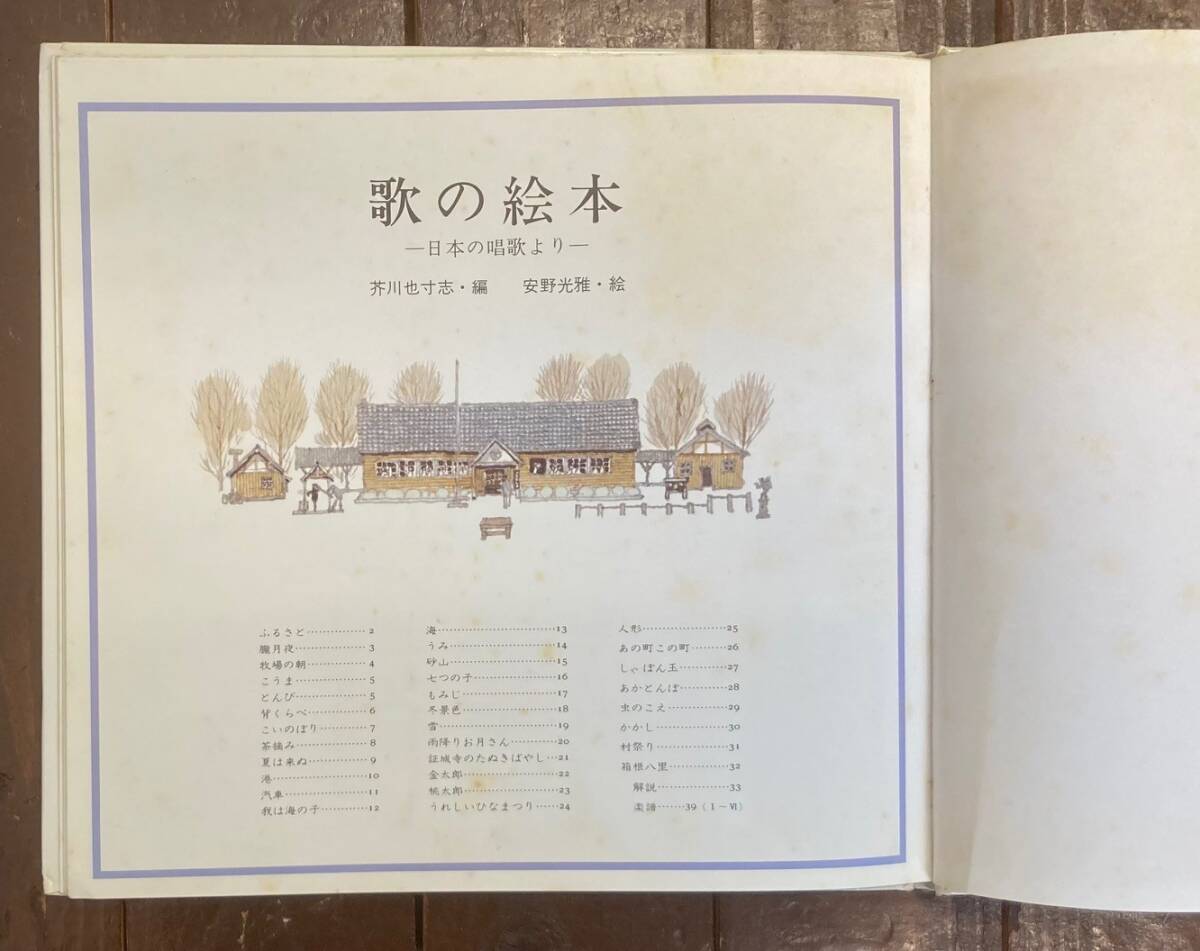 歌の絵本
―日本の唱歌より―
芥川也寸志・編　安野光雅・絵
ふるさと……………2
朧月夜………………3
牧場の朝……………4
こうま………………5
とんび………………5
背くらべ……………6
こいのぼり…………7
茶摘み………………8
夏は来ぬ……………9
港……………………10
汽車…………………11
我は海の子…………12
海……………………13
うみ…………………14
砂山…………………15
七つの子……………16
もみじ………………17
冬景色………………18
雪……………………19
雨降りお月さん……20
証城寺のたぬきばやし…21
金太郎………………22
桃太郎………………23
うれしいひなまつり……24
人形…………………25
あの町この町………26
しゃぼん玉…………27
あかとんぼ…………28
虫のこえ……………29
かかし………………30
村祭り………………31
箱根八里……………32
解説…………………33
楽譜……39（I～VI）